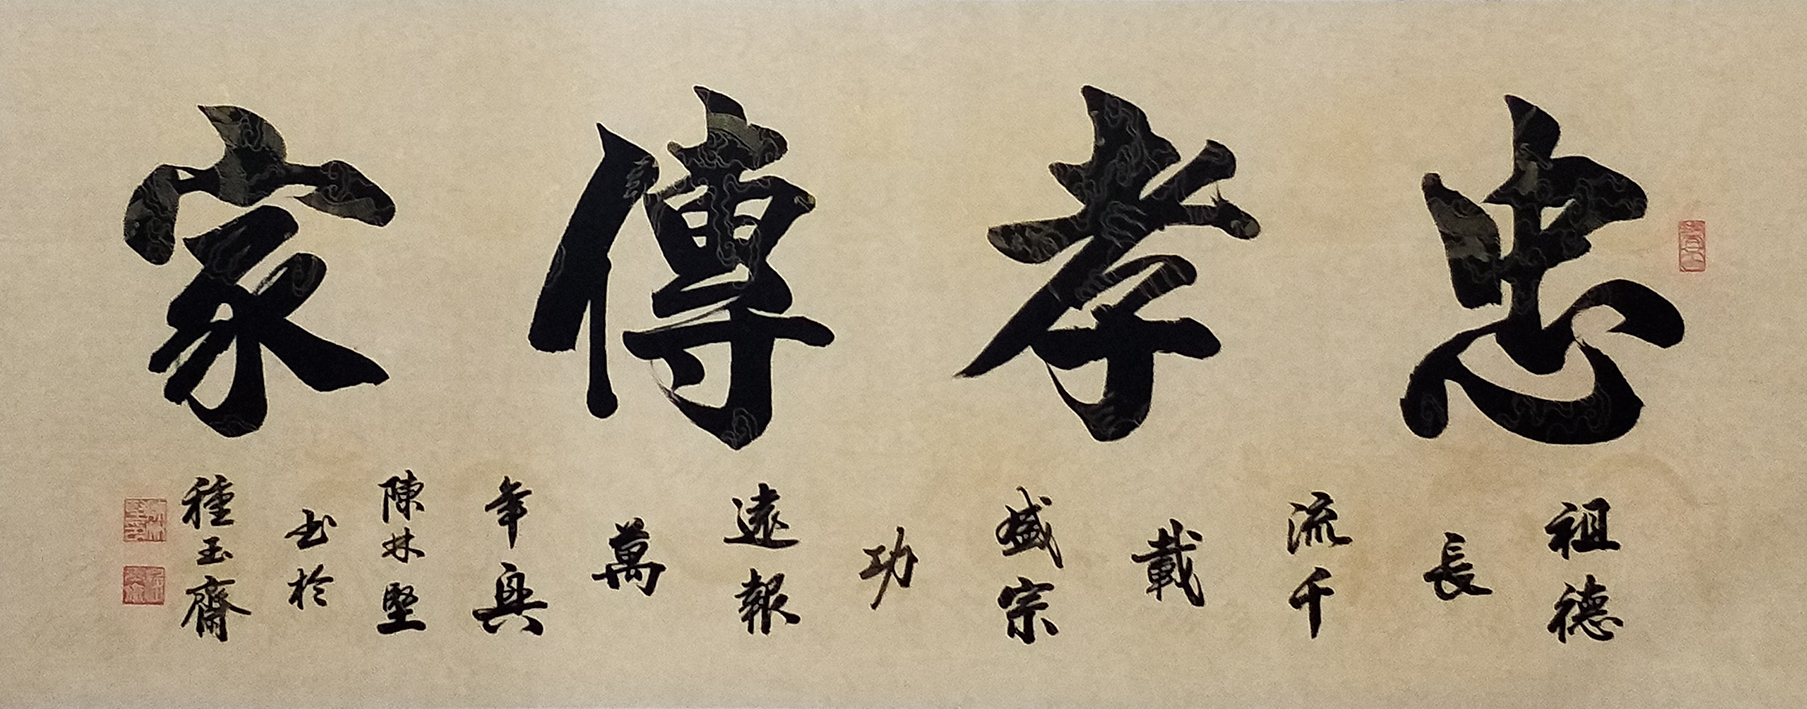 忠孝傳家
祖德
長
流千
載
盛宗
功
遠報
萬
年興
陳林堅
书於
種玉齋